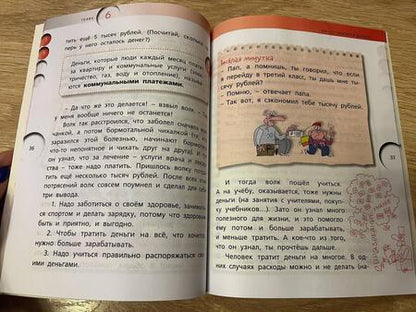 ГЛАВА 6
тить ещё 5 тысяч рублей. (Посчитай, сколько
перь у него осталось денег?)
Деньги, которые люди каждый месяц
за квартиру и коммунальные услуги
тричество, газ, воду и отопление), назы
коммунальными платежами.
– Да что же это делается! – взвыл волк. –
у меня вообще ничего не останется!
Волк так расстроился, что заболел сначала
чанкой, а потом бормотальной чихалкой
заразился этой болезнью, начинают бормотать
что-то непонятное и чихать друг на друга).
он узнал, что за лечение – услуги врача и
– тоже надо платить. Пришлось волку
тить ещё несколько тысяч рублей. После всех
потрясений волк совсем поумнел и сделал для себя
три вывода.
1. Надо заботиться о своём здоровье, занимать-
ся спортом и делать зарядку, потому что здоровым
быть и приятно, и выгодно.
2. Чтобы тратить деньги на всё, что хочется
нужно больше зарабатывать.
3. Надо учиться правильно распоряжаться свои
ми деньгами.
36
Весёлая минутка
– Пап, а помнишь, ты говорил, что если
я перейду в третий класс, ты дашь мне ты-
сячу рублей?
– Помню, – отвечает папа.
– Так вот, я сэкономил тебе тысячу рублей.
И тогда волк пошёл учиться.
А на учёбу, оказывается, тоже нужны
деньги (на занятия с учителями, покуп-
ку учебников...). Зато он узнал много
полезного для жизни, и это помогло
ему потом и больше зарабатывать,
и меньше тратить. А кое-что из того,
что он узнал, ты прочтёшь дальше.
Человек тратит деньги на многое. В од-
них случаях расходы можно и не делать (на-